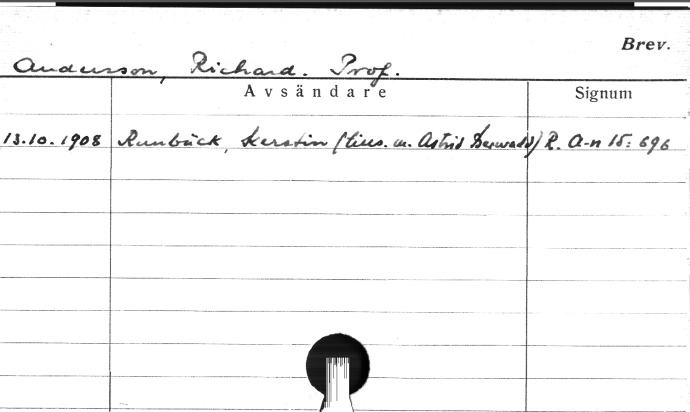 Brev.
Andersson, Richard. Prof.
Avsändare Signum
13.10.1908 Runbäck, Kerstin (tills. m. Astrid Berwald) R. A-n 15: 696